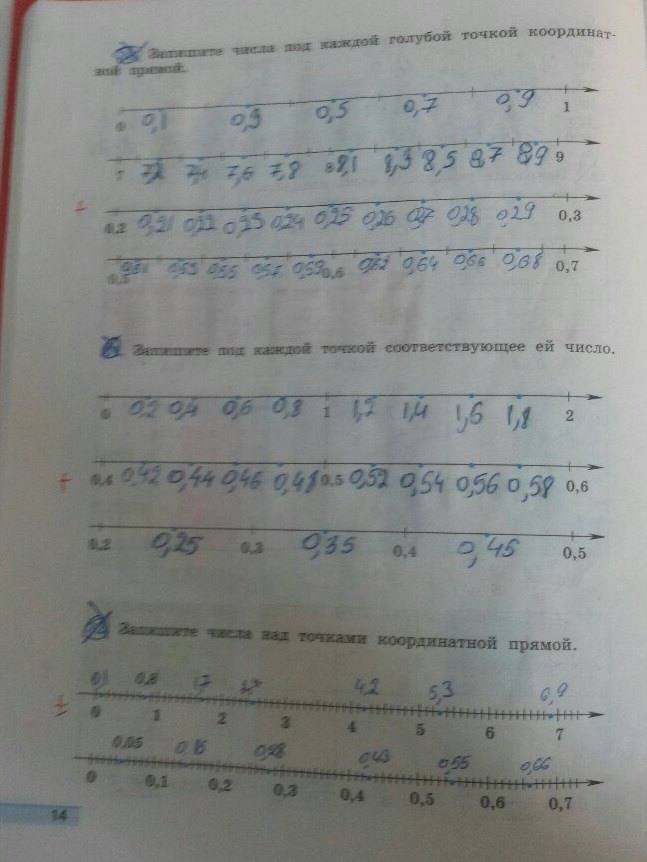 Запишите числа под каждой голубой точкой координат-
ной прямой.
0 0,1 0,3 0,5 0,7 0,9 1
7 7,6 7,8 8 8,1 8,3 8,5 8,7 8,9 9
0,2 0,21 0,22 0,23 0,24 0,25 0,26 0,28 0,29 0,3
0,5 0,51 0,53 0,55 0,57 0,59 0,6 0,62 0,64 0,66 0,68 0,7
Запишите под каждой точкой соответствующее ей число.
0 0,2 0,4 0,6 0,8 1 1,2 1,4 1,6 1,8 2
0,4 0,42 0,44 0,46 0,48 0,5 0,52 0,54 0,56 0,58 0,6
0,2 0,25 0,3 0,35 0,4 0,45 0,5
Запишите числа над точками координатной прямой.
0,1 0,8 1,7 4,2 5,3 6,9
0 1 2 3 4 5 6 7
0,05 0,15 0,28 0,43 0,55 0,66
0 0,1 0,2 0,3 0,4 0,5 0,6 0,7
14